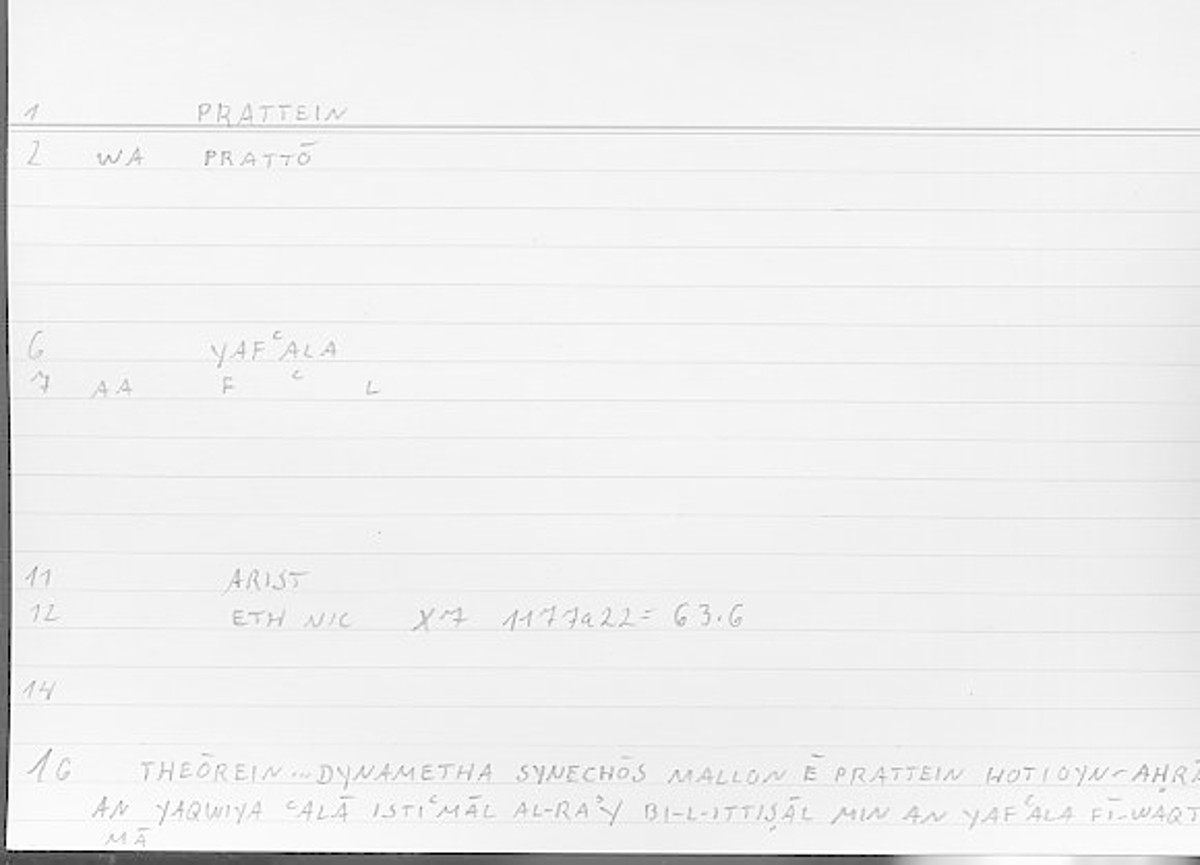 1 PRATTEIN
2 WA PRATTŌ
6 YAFᶜALA
7 AA F ᶜ L
11 ARIST
12 ETH NIC X7 1177a22= 63.6
14
16 THEŌREIN...DYNAMETHA SYNECHŌS MALLON Ē PRATTEIN HOTIOYN~AḤRĀ
AN YAQWIYA ᶜALĀ ISTIᶜMĀL AL-RAʾY BI-L-ITTIṢĀL MIN AN YAFᶜALA FĪ-WAQT
MĀ